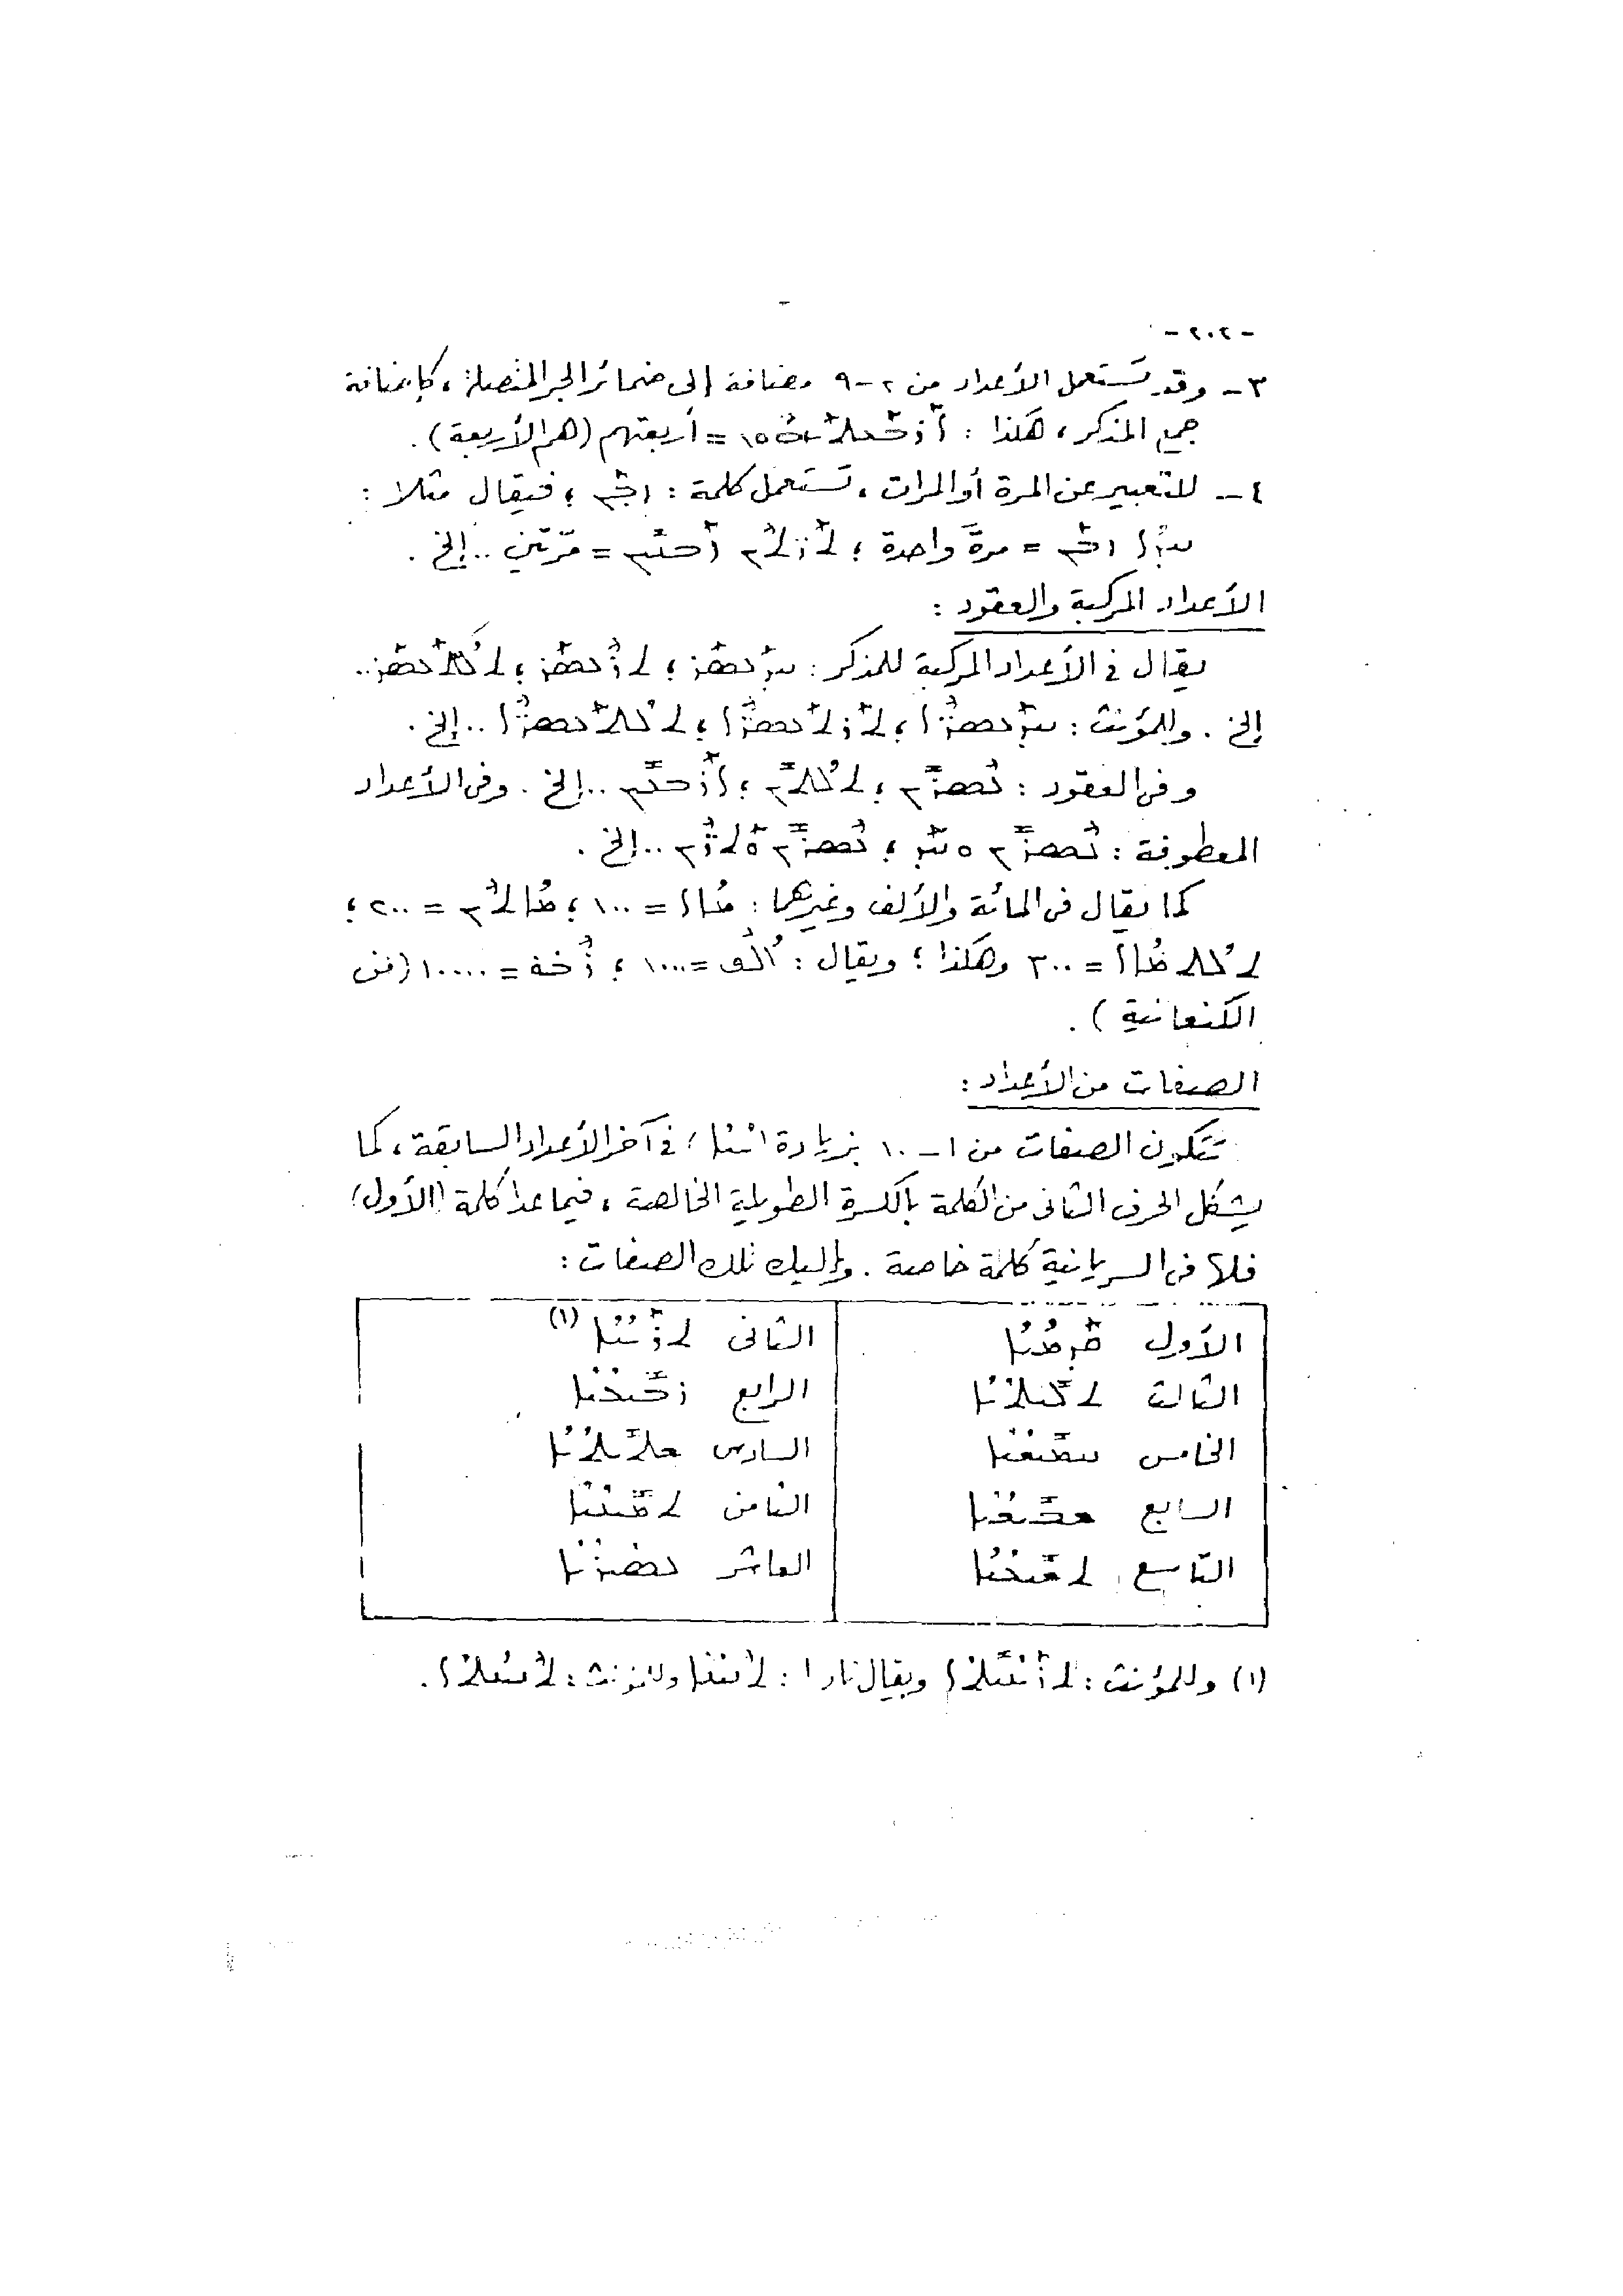 -٢٠٢-
٣- وقد تستعمل الأعداد من ٢-٩ مضافة إلى ضمائر الجر المتصلة، كإضافة
جمع المذكر، هكذا : ܐܪܒܥܬܝܗܘܢ = أربعتهم (هم الأربعة).
٤- للتعبير عن المرة أو المرات، تستعمل كلمة : ܙܒܢ ؛ فيقال مثلا :
ܚܕܐ ܙܒܢ = مرة واحدة ؛ ܬܪܬܝܢ ܙܒܢܝܢ = مرّتين .. إلخ .
الأعداد المركبة والعقود :
يقال في الأعداد المركبة للمذكر : ܚܕܥܣܪ ؛ ܬܪܥܣܪ ؛ ܬܠܬܥܣܪ ..
إلخ . وللمؤنث : ܚܕܥܣܪܐ ؛ ܬܪܬܥܣܪܐ ؛ ܬܠܬܥܣܪܐ .. إلخ .
وفي العقود : ܥܣܪܝܢ ؛ ܬܠܬܝܢ ؛ ܐܪܒܥܝܢ .. إلخ . وفي الأعداد
المعطوفة : ܥܣܪܝܢ ܘܚܕ ؛ ܥܣܪܝܢ ܘܬܪܝܢ .. إلخ .
كما يقال في المائة والألف وغيرهما : ܡܐܐ = ١٠٠ ؛ ܡܐܬܝܢ = ٢٠٠ ؛
ܬܠܬ ܡܐܐ = ٣٠٠ وهكذا ؛ ويقال : ܐܠܦ = ١٠٠٠ ؛ ܪܒܘ = ١٠٠٠٠ (من
الكنعانية ) .
الصفات من الأعداد :
تتكون الصفات من ١-١٠ بزيادة ܝܢܐ في آخر الأعداد السابقة، كما
يشكل الحرف الثاني من الكلمة بالكسرة الطويلة الخالصة ، فيما عدا كلمة (الأول)
فلها في السريانية كلمة خاصة . وإليك تلك الصفات :
الأول ܩܕܡܝܐ الثاني ܬܪܝܢܐ (١)
الثالث ܬܠܝܬܝܐ الرابع ܪܒܝܥܝܐ
الخامس ܚܡܝܫܝܐ السادس ܫܬܝܬܝܐ
السابع ܫܒܝܥܝܐ الثامن ܬܡܝܢܝܐ
التاسع ܬܫܝܥܝܐ العاشر ܥܣܝܪܝܐ
(١) وللمؤنث : ويقال نادرا : وللمؤنث :